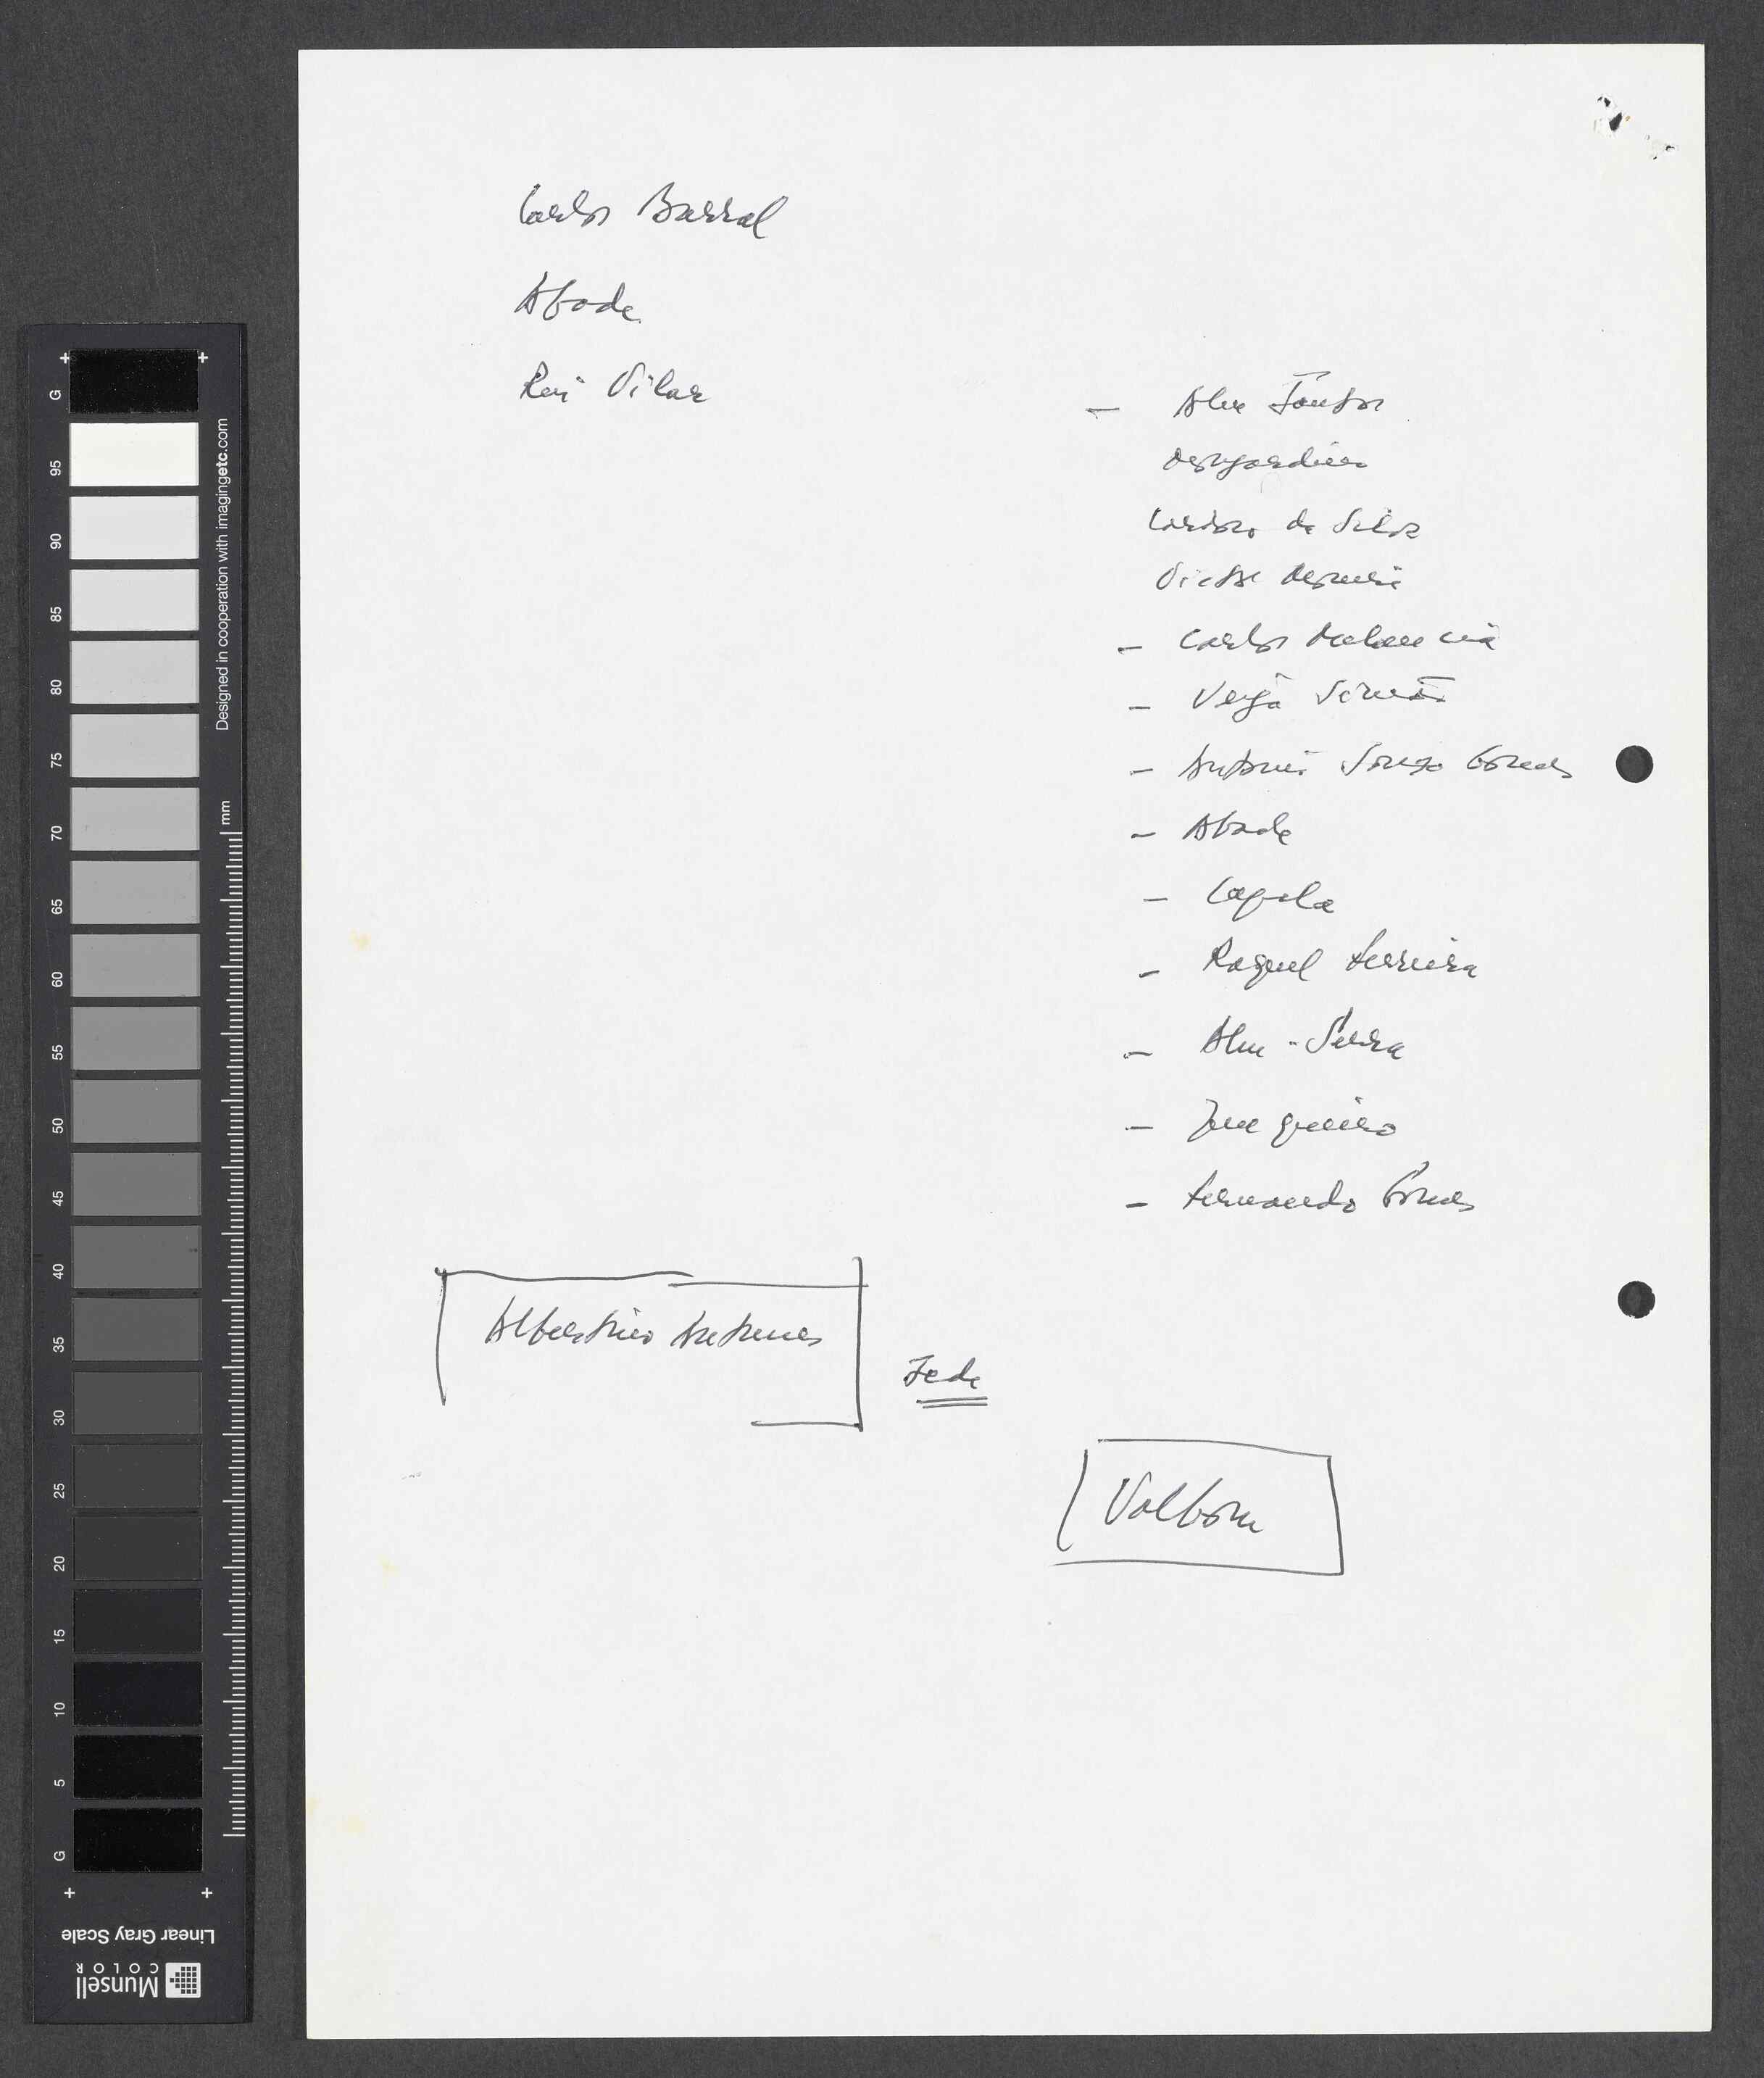 Carlos Barral
Abade
Rui Vilar
- Alm Santos
Cardoso da Silva
Victor
- Carlos Melancia
- Veiga Simão
- António Sousa Gomes
- Abade
- Capela
- Raquel Ferreira
- Alm. Serra
- Junqueiro
- Fernando Gomes
Albertino Antunes
Sede
Valbom
G
95
90
85
80
75
70
65
60
55
50
45
40
35
30
25
20
15
10
5
G
Designed in cooperation with imagingetc.com
mm
Linear Gray Scale
Munsell
COLOR